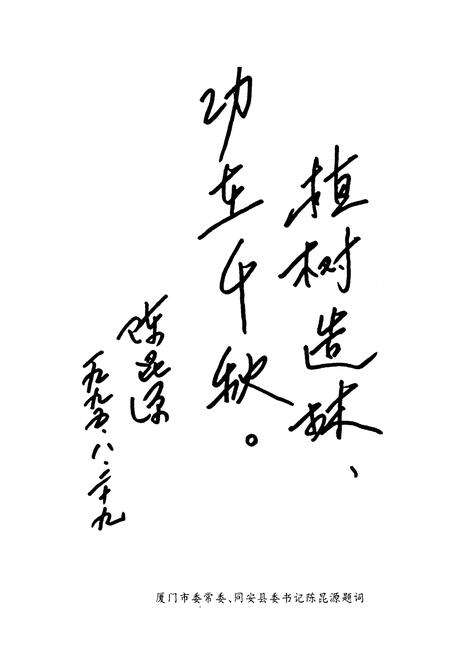 植树造林、
功在千秋。
陈昆源
一九九五.八.二十九
厦门市委常委、同安县委书记陈昆源题词